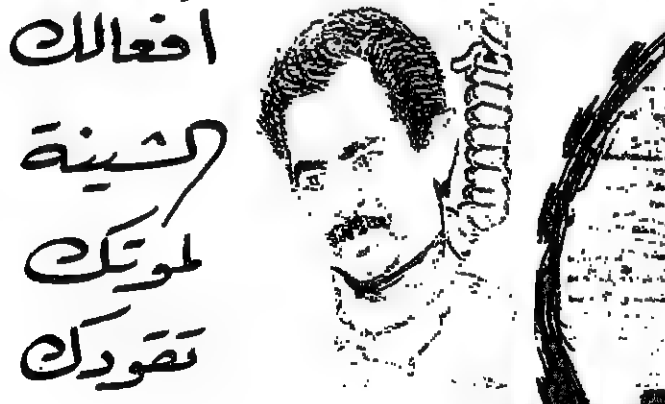 أفعالك
الشينة
لموتك
تقودك